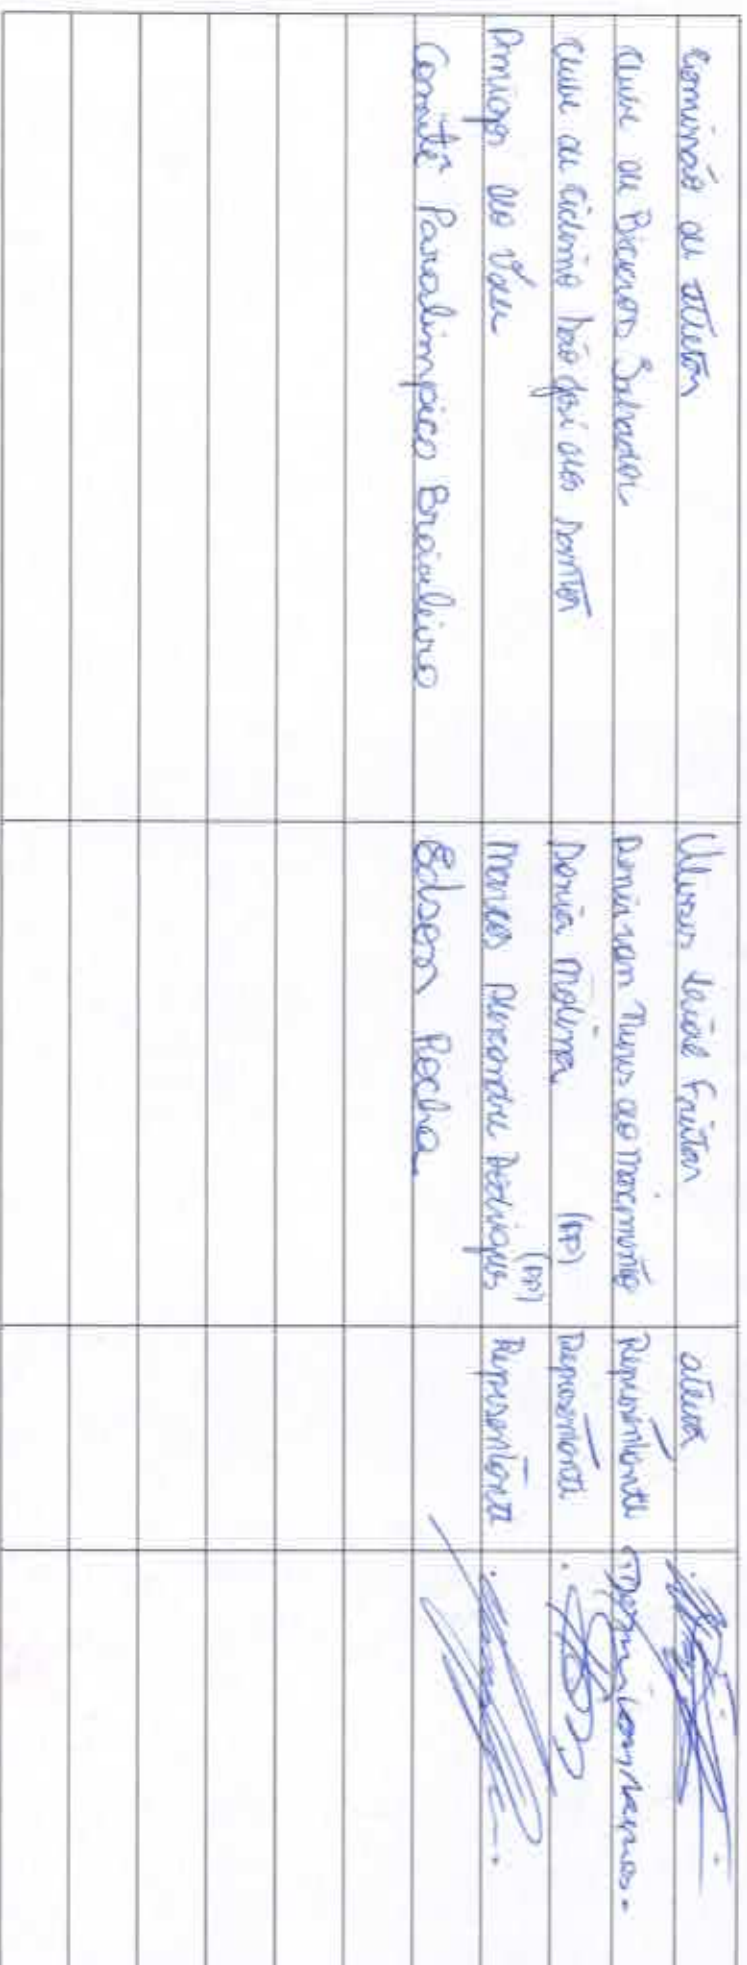 Comissão de Atletas Ulisses Leal Freitas atleta
Clube de Bicicross Salvador Denivan Nunes do Nascimento Representante Denivan Nunes.
Clube de Ciclismo São José dos Santos Molina (PP) Representante
Amigos do Marcos Alexandre Rodrigues (PP) Representante
Comitê Paralímpico Brasileiro Edson Rocha